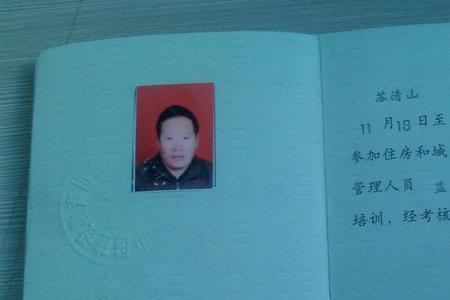 苏清山
11月18日至
参加住房和城
管理人员
培训,经考核